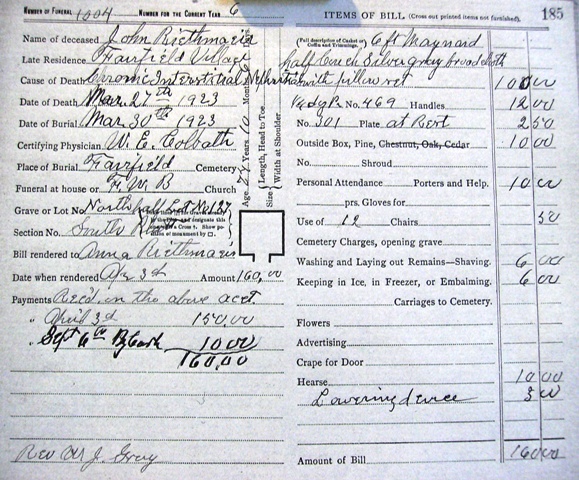 NUMBER OF FUNERAL 1004 NUMBER FOR THE CURRENT YEAR 6
Name of deceased John Riethmaier
Late Residence Fairfield Village
Cause of Death Chronic Interstitial Nephritis
Date of Death Mar. 27th 1923
Date of Burial Mar 30th 1923
Certifying Physician W. E. Colbath
Place of Burial Fairfield Cemetery
Funeral at house or F. W. B Church
Grave or Lot No. North half Lot No 127
Section No. South
Bill rendered to Anna Riethmaier
Date when rendered Ap 3d Amount 160,00
Payments Rec'd. on the above acct
" April 3d 150,00
" Sept 6th By Cash 10 00
160,00
Rev W. J. Gray
Age Years 10 Months
Size { Length, Head to Toe
Width at Shoulder
ITEMS OF BILL (Cross out printed items not furnished). 185
(Full description of Casket or Coffin and Trimmings. 6 ft Maynard
half Couch Silver gray broadcloth
with pillow set 100 00
No. 469 Handles 12 00
No. 301 Plate at Rest 2 50
Outside Box, Pine, Chestnut, Oak, Cedar 10 00
No. Shroud
Personal Attendance Porters and Help. 10 00
prs. Gloves for
Use of 12 Chairs 50
Cemetery Charges, opening grave
Washing and Laying out Remains—Shaving. 6 00
Keeping in Ice, in Freezer, or Embalming. 6 00
Carriages to Cemetery.
Flowers
Advertising
Crape for Door
Hearse 10 00
Lowering device 3 00
Amount of Bill 160 00